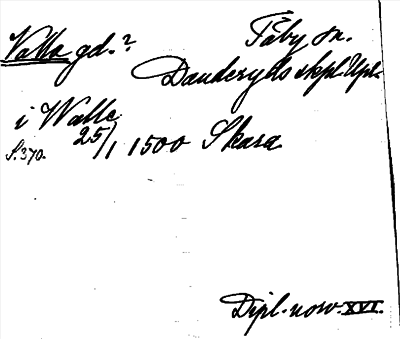 Valla gd.? Täby sn.
Danderyds skpl. Upl.
i Walle
S. 370. 25/1 1500 Skara
Dipl. norv. XVI.